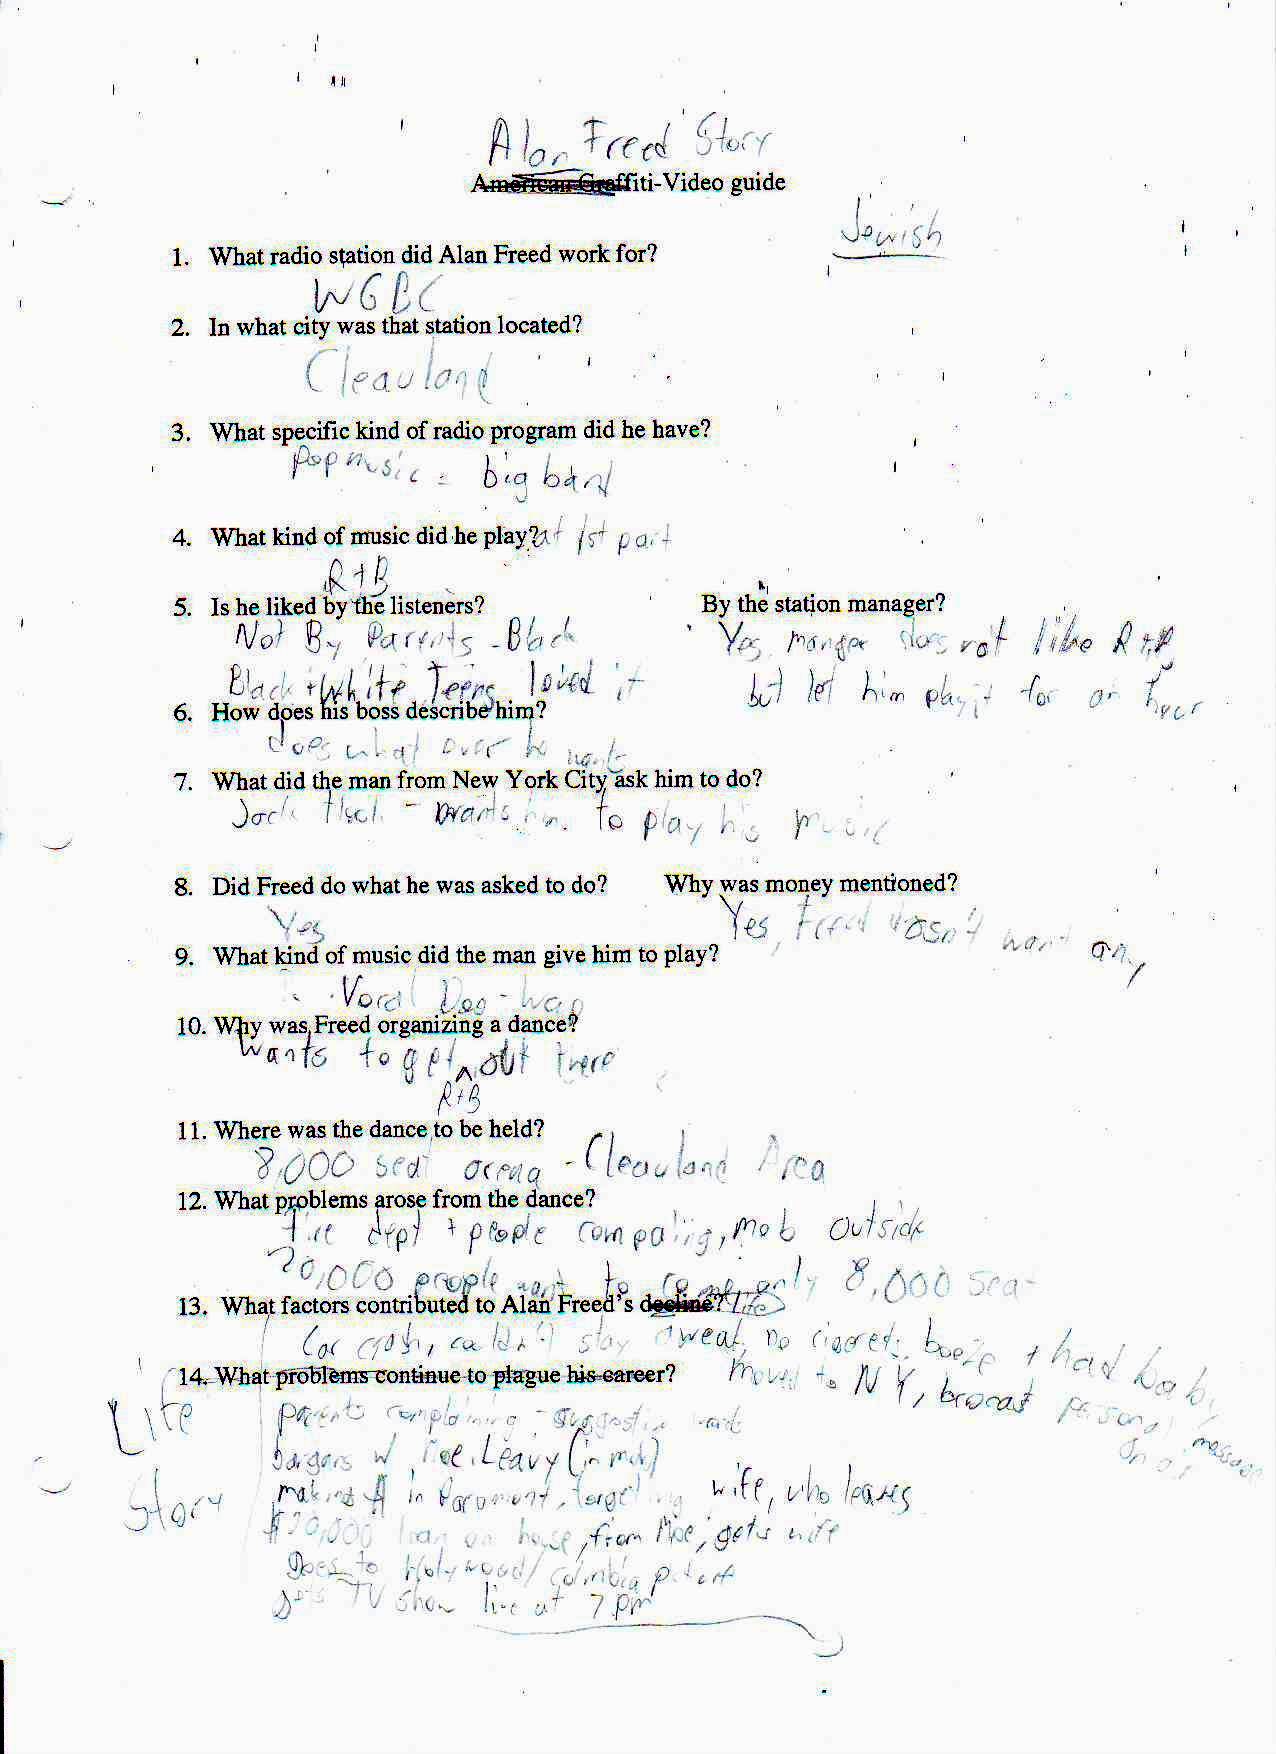 Alan Freed Story
American Graffiti-Video guide
Jewish
1. What radio station did Alan Freed work for?
WGBC
2. In what city was that station located?
Cleauland
3. What specific kind of radio program did he have?
Pop music = big band
4. What kind of music did he play? at 1st part
R+B
5. Is he liked by the listeners? By the station manager?
Not By Parents - Black Yes, manger does not like R+B
Black + White Teens loved it but let him play it for an hour
6. How does his boss describe him?
does what over he wants
7. What did the man from New York City ask him to do?
Jack - wants him to play his music
8. Did Freed do what he was asked to do? Why was money mentioned?
Yes Yes, Freed dosn't want any
9. What kind of music did the man give him to play?
Vocal Doo-wap
10. Why was Freed organizing a dance?
wants to get R+B out there
11. Where was the dance to be held?
8,000 seat arena - Cleauland Area
12. What problems arose from the dance?
Fire dept + people compaling, mob outside
20,000 people want to come only 8,000 sea
13. What factors contributed to Alan Freed's decline? Life
Car crash, couldn't stay sweat, no cigaret, booze + had baby
14. What problems continue to plague his career? moved to NY, brocast personal message on air
Life Story
parents complaining - suggestive words
bargens w/ Moe Leavy (in mob)
making $ in Paromont, forgetting wife, who leaves
$20,000 loan on house, from Moe, gets wife
Goes to Holywood/Columbia
gets TV show live at 7 pm